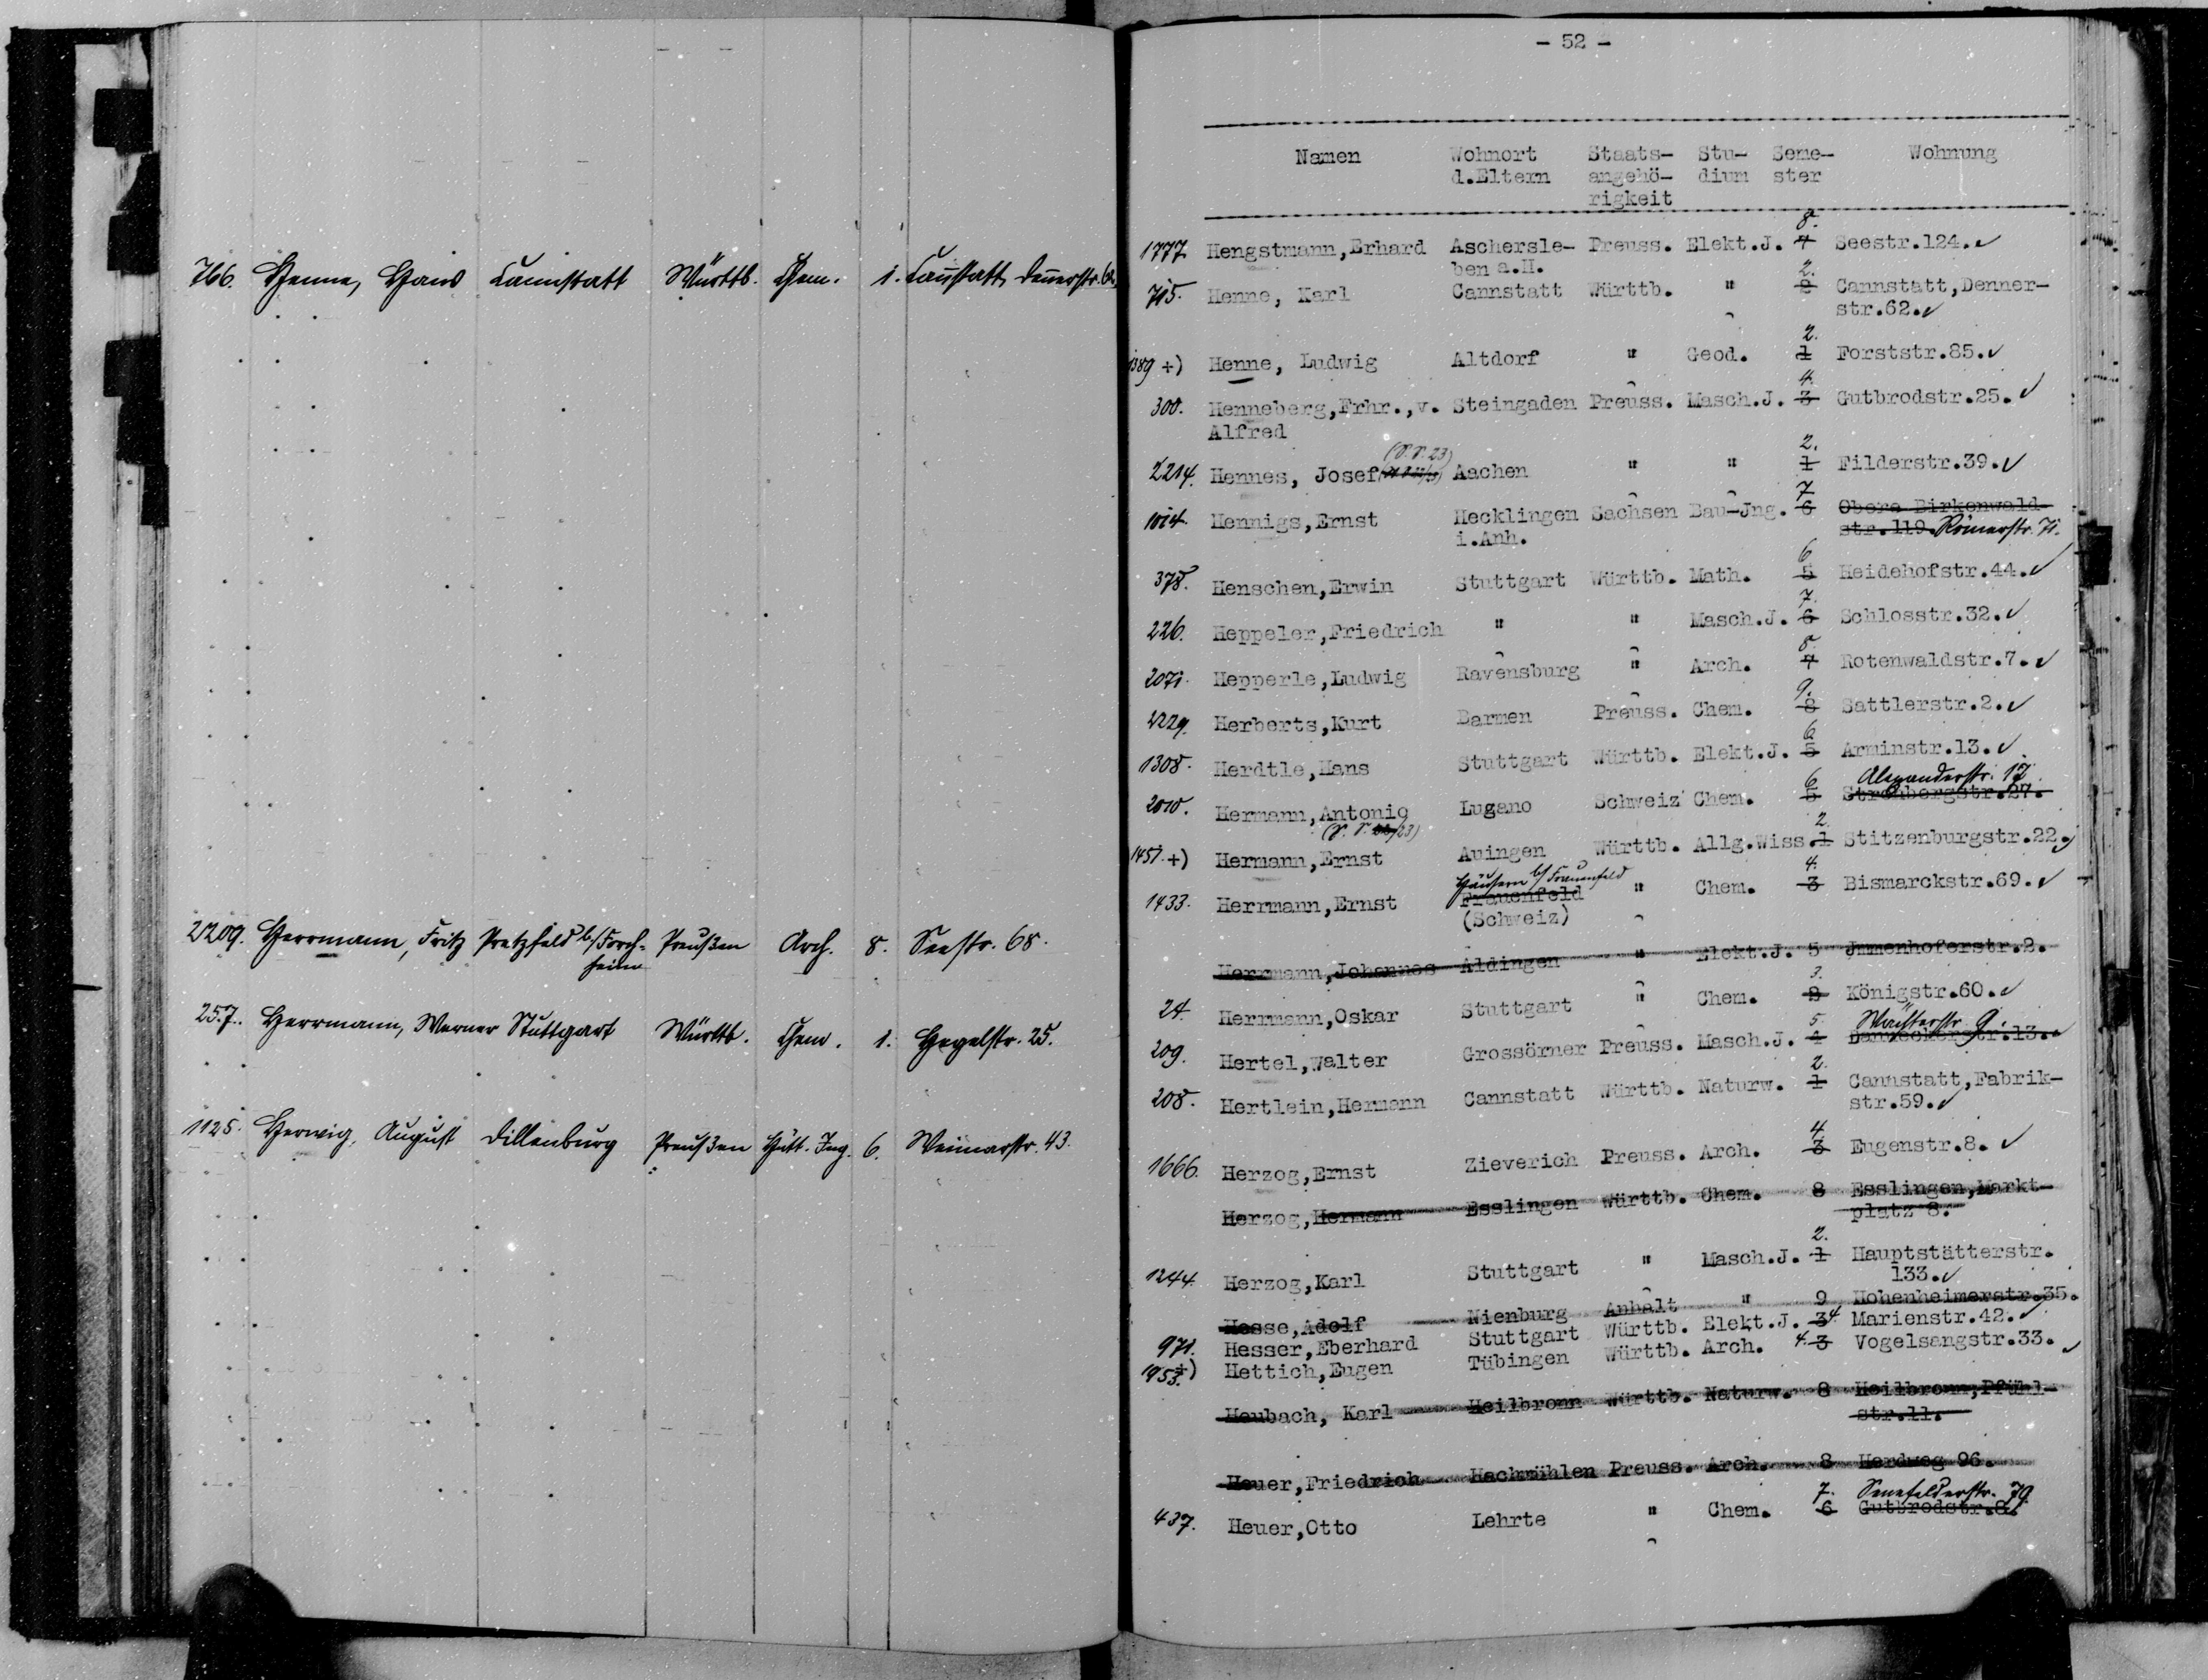 766. Henne, Hans Cannstatt Württb. Chem. 1. Cannstatt, Dennerstr. 62.
2209. Herrmann, Fritz Pretzfeld b/Forch- Preußen Arch. 8. Seestr. 68.
heim
257. Herrmann, Werner Stuttgart Württb. Chem. 1. Hegelstr. 25.
1125. Herwig, August Dillenburg Preußen Hütt. Ing. 6. Weimarstr. 43.
- 52 -
Namen Wohnort Staats- Stu- Seme- Wohnung
d.Eltern angehö- dium ster
rigkeit
8.
1777. Hengstmann,Erhard Aschersle- Preuss. Elekt.J. 7 Seestr.124.
ben a.H.
2.
715. Henne, Karl Cannstatt Württb. " 2 Cannstatt,Denner-
str.62.
2.
1389 +) Henne, Ludwig Altdorf " Geod. 1 Forststr.85.
4.
300. Henneberg,Frhr.,v. Steingaden Preuss. Masch.J. 3 Gutbrodstr.25.
Alfred
(S.S. 23) 2.
2214. Hennes, Josef Aachen " " 1 Filderstr.39.
7
1014. Hennigs,Ernst Hecklingen Sachsen Bau-Jng. 6 Obere Birkenwald-
i.Anh. str.119. Römerstr. 71.
6
378. Henschen,Erwin Stuttgart Württb. Math. 5 Heidehofstr.44.
7.
226. Heppeler,Friedrich " " Masch.J. 6 Schlosstr.32.
8.
2071. Hepperle,Ludwig Ravensburg " Arch. 7 Rotenwaldstr.7.
9.
2229. Herberts,Kurt Barmen Preuss. Chem. 8 Sattlerstr.2.
6
1308. Herdtle,Hans Stuttgart Württb. Elekt.J. 5 Arminstr.13.
6 Alexanderstr. 17.
2010. Hermann,Antonio Lugano Schweiz Chem. 5 Strohbergstr.27.
(S. S. 23) 2.
1451. +) Hermann,Ernst Auingen Württb. Allg.Wiss. 1 Stitzenburgstr.22.
Häusern b/ Frauenfeld 4.
1433. Herrmann,Ernst Frauenfeld " Chem. 3 Bismarckstr.69.
(Schweiz)
Herrmann,Johannes Aldingen " Elekt.J. 5 Jmmenhoferstr.2.
3.
24. Herrmann,Oskar Stuttgart " Chem. 2 Königstr.60.
5. Wächterstr. 9.
209. Hertel,Walter Grossörner Preuss. Masch.J. 4 Danneckerstr.13.
2.
208. Hertlein,Hermann Cannstatt Württb. Naturw. 1 Cannstatt,Fabrik-
str.59.
4.
1666. Herzog,Ernst Zieverich Preuss. Arch. 3 Eugenstr.8.
Herzog,Hermann Esslingen Württb. Chem. 8 Esslingen,Markt-
platz 8.
2.
1244. Herzog,Karl Stuttgart " Masch.J. 1 Hauptstätterstr.
133.
Hesse,Adolf Nienburg Anhalt " 9 Hohenheimerstr.35.
971. Hesser,Eberhard Stuttgart Württb. Elekt.J. 3 4. Marienstr.42.
1953. +) Hettich,Eugen Tübingen Württb. Arch. 4. 3 Vogelsangstr.33.
Heubach, Karl Heilbronn Württb. Naturw. 8 Heilbronn,Pfühl-
str.11.
Heuer,Friedrich Hachmühlen Preuss. Arch. 8 Herdweg 96.
7. Senefelderstr. 79.
437. Heuer,Otto Lehrte " Chem. 6 Gutbrodstr.8.